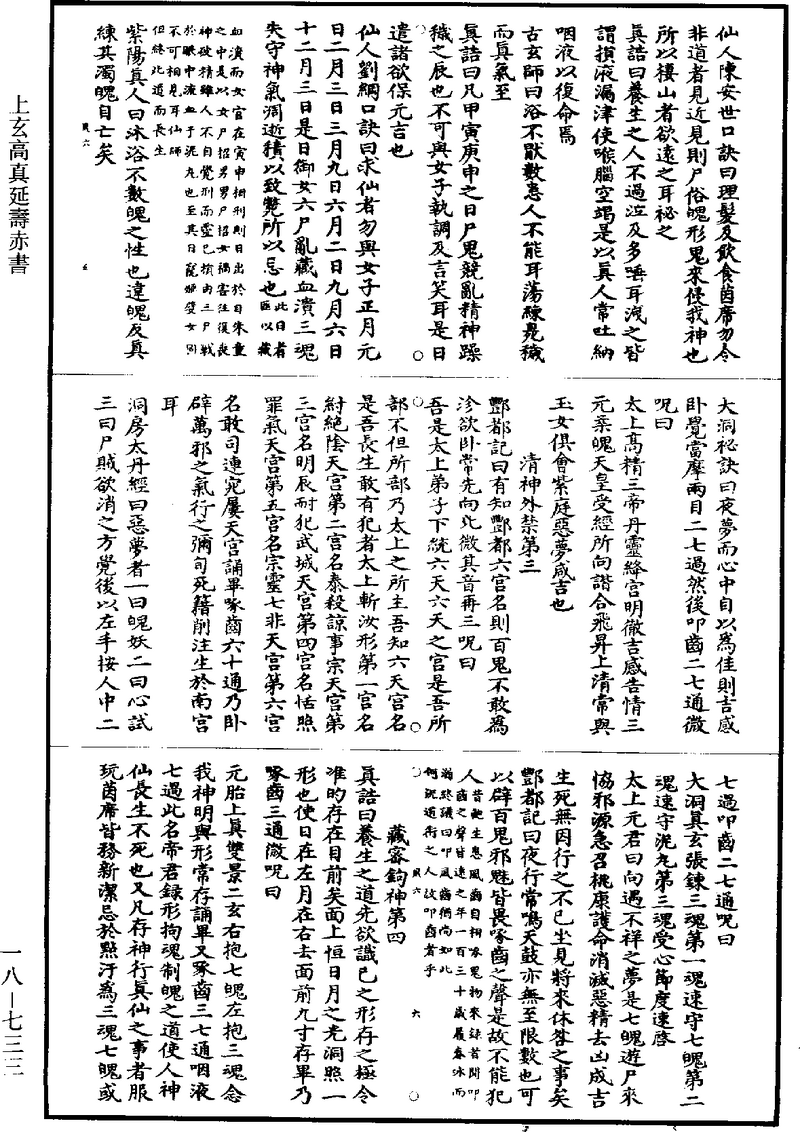 上玄高真延壽赤書
仙人陳安世口訣曰理髮及飲食茵席勿令
非道者見近見則尸俗魄形鬼來侵我神也
所以棲山者欲遠之耳祕之
真誥曰養生之人不過泣及多唾耳洩之皆
謂損液漏津使喉腦空竭是以真人常吐納
咽液以復命焉
古玄師曰浴不猒數患人不能耳蕩練鬼穢
而真氣至
真誥曰凡甲寅庚申之日尸鬼競亂精神躁
穢之辰也不可與女子執調及言笑耳是日
遣諸欲保元吉也
仙人劉綱口訣曰求仙者勿與女子正月元
日二月三日三月九日六月二日九月六日
十二月三日是日御女六尸亂藏血潰三魂
失守神氣凋逝積以致斃所以忌也此日者
匪以藏
血潰而女宮在寅申相刑則日出於日朱童
之中是以女尸招男男尸招女禍害往復喪
神破精雖人不自覺刑而靈已損由三尸戰
於眼中流血于泥丸也至其日寵姬嬖女同
不可相見耳仙師
但終此道而長生
紫陽真人曰沐浴不數魄之性也違魄反真
練其濁魄自亡矣
大洞祕訣曰夜夢而心中自以為佳則吉感
卧覺當摩兩目二七過然後叩齒二七通微
呪曰
太上高精三帝丹靈絳宮明徹吉感告情三
元柔魄天皇受經所向諧合飛昇上清常與
玉女俱會紫庭惡夢咸吉也
清神外禁第三
酆都記曰有知酆都六宮名則百鬼不敢為
沴欲卧常先向北微其音再三呪曰
吾是太上弟子下統六天六天之宮是吾所
部不但所部乃太上之所主吾知六天宮名
是吾長生敢有犯者太上斬汝形第一宮名
紂絕陰天宮第二宮名泰殺諒事宗天宮第
三宮名明辰耐犯武城天宮第四宮名恬照
罪氣天宮第五宮名宗靈七非天宮第六宮
名敢司連宛屢天宮誦畢啄齒六十通乃卧
辟萬邪之氣行之彌句死籍削注生於南宮
耳
洞房太丹經曰惡夢者一曰魄妖二曰心試
三曰尸賊欲消之方覺後以左手按人中二
七過叩齒二七通呪曰
大洞真玄張鍊三魂第一魂速守七魄第二
魂速守泥丸第三魂受心節度速啓
太上元君曰向遇不祥之夢是七魄遊尸來
協邪源急召桃康護命消滅惡精去凶成吉
生死無因行之不已坐見將來休咎之事矣
酆都記曰夜行常鳴天鼓亦無至限數也可
以辟百鬼邪魅皆畏啄齒之聲是故不能犯
人昔鮑生患風齒自相啄鬼物來錄昔聞叩
齒之聲皆遠之年一百三十歲履春冰而
溺終議曰叩風齒猶尚如此
何況道術之人故叩齒者乎
藏密鉤神第四
真誥曰養生之道先欲識己之形存之極令
准的存在目前矣面上恒日月之光洞照一
形也使日在左月在右去面前九寸存畢乃
啄齒三通微呪曰
元胎上真雙景二玄右抱七魄左抱三魂念
我神明與形常存誦畢又啄齒三七通咽液
七過此名帝君錄形拘魂制魄之道使人神
仙長生不死也又凡存神行真仙之事者服
玩茵席皆務新潔忌於黚汙為三魂七魄或
一八—七三三